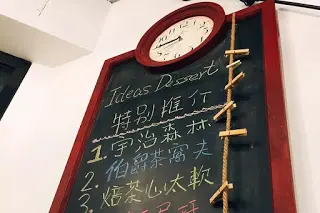 Ideas Dessert
特別推介
1. 宇治森林
2. 伯爵茶窩夫
3. 焙茶心太軟